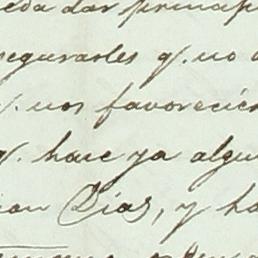 eda dar princip
segurarles q. no
q. nos favorecie
q. hace ya algu
ian Dias, y ha